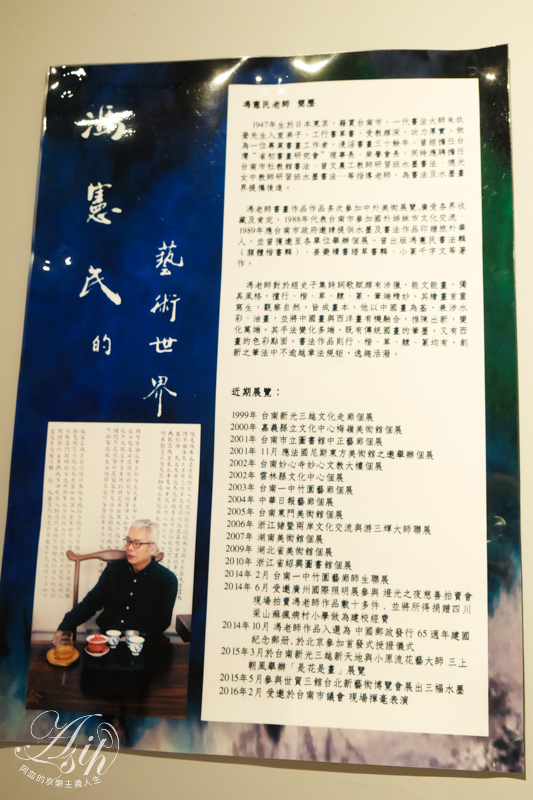 馮憲民的
藝術世界
馮憲民老師 簡歷
1947年生於日本東京，籍貫台南市，一代書法大師朱玖
瑩先生入室弟子，工行書草書，受教頗深，功力厚實，做
為一位專業書畫工作者，浸淫書畫三十餘年，曾經擔任台
灣"省初書畫研究會"理事長、榮譽會長，同時應聘擔任
台南市社教館書法、曾文農工教師研習班水墨書法、德光
女中教師研習班水墨書法…等指導老師，為書法及水墨畫
界提攜後進。
馮老師書畫作品作品多次參加中外美術展覽，廣受各界收
藏及肯定，1988年代表台南市參加國外姊妹市文化交流，
1989年應台南市政府邀請提供水墨及書法作品印贈旅外華
人，並曾獲邀至各單位舉辦個展。曾出版馮憲民書法輯
（顏體楷書輯）、姜夔續書譜草書輯、小篆千字文等著
作。
馮老師對於經史子集詩詞歌賦頗有涉獵，能文能畫，獨
具風格，擅行、楷、草、隸、篆，筆端精妙。其繪畫首重
寫生，觀察自然，皆成畫本，他以中國畫為基，兼涉水
彩、油畫，並將中國畫與西洋畫有機融合，推陳出新，變
化萬端。其手法變化多端，既有傳統國畫的筆墨，又有西
畫的色彩點面。書法作品則行、楷、草、隸、篆均有，創
新之筆法中不逾越章法規矩，逸趣活潑。
近期展覽：
1999年 台南新光三越文化走廊個展
2000年 嘉義縣立文化中心梅嶺美術館個展
2001年 台南市立圖書館中正藝廊個展
2001年 11月 應法國尼斯東方美術館之邀舉辦個展
2002年 台南妙心寺妙心文教大樓個展
2002年 雲林縣文化中心個展
2003年 台南一中竹園藝廊個展
2004年 中華日報藝廊個展
2005年 台南東門美術館個展
2006年 浙江諸暨兩岸文化交流與游三輝大師聯展
2007年 湖南美術館個展
2009年 湖北省美術館個展
2010年 浙江省紹興圖書館個展
2014年 2月 台南一中竹園藝廊師生聯展
2014年 6月 受邀廣州國際照明展參與 燈光之夜慈善拍賣會
現場拍賣馮老師作品數十多件，並將所得捐贈四川
梁山痲瘋病村小學做為建校經費
2014年10月 馮老師作品入選為 中國郵政發行 65 週年建國
紀念郵册，於北京參加首發式授證儀式
2015年3月於台南新光三越新天地與小原流花藝大師 三上
朝風舉辦「是花是畫」展覽
2015年5月參與世貿三館台北新藝術博覽會展出三幅水墨
2016年2月 受邀於台南市議會 現場揮毫表演
Asin
阿血的享樂主義人生